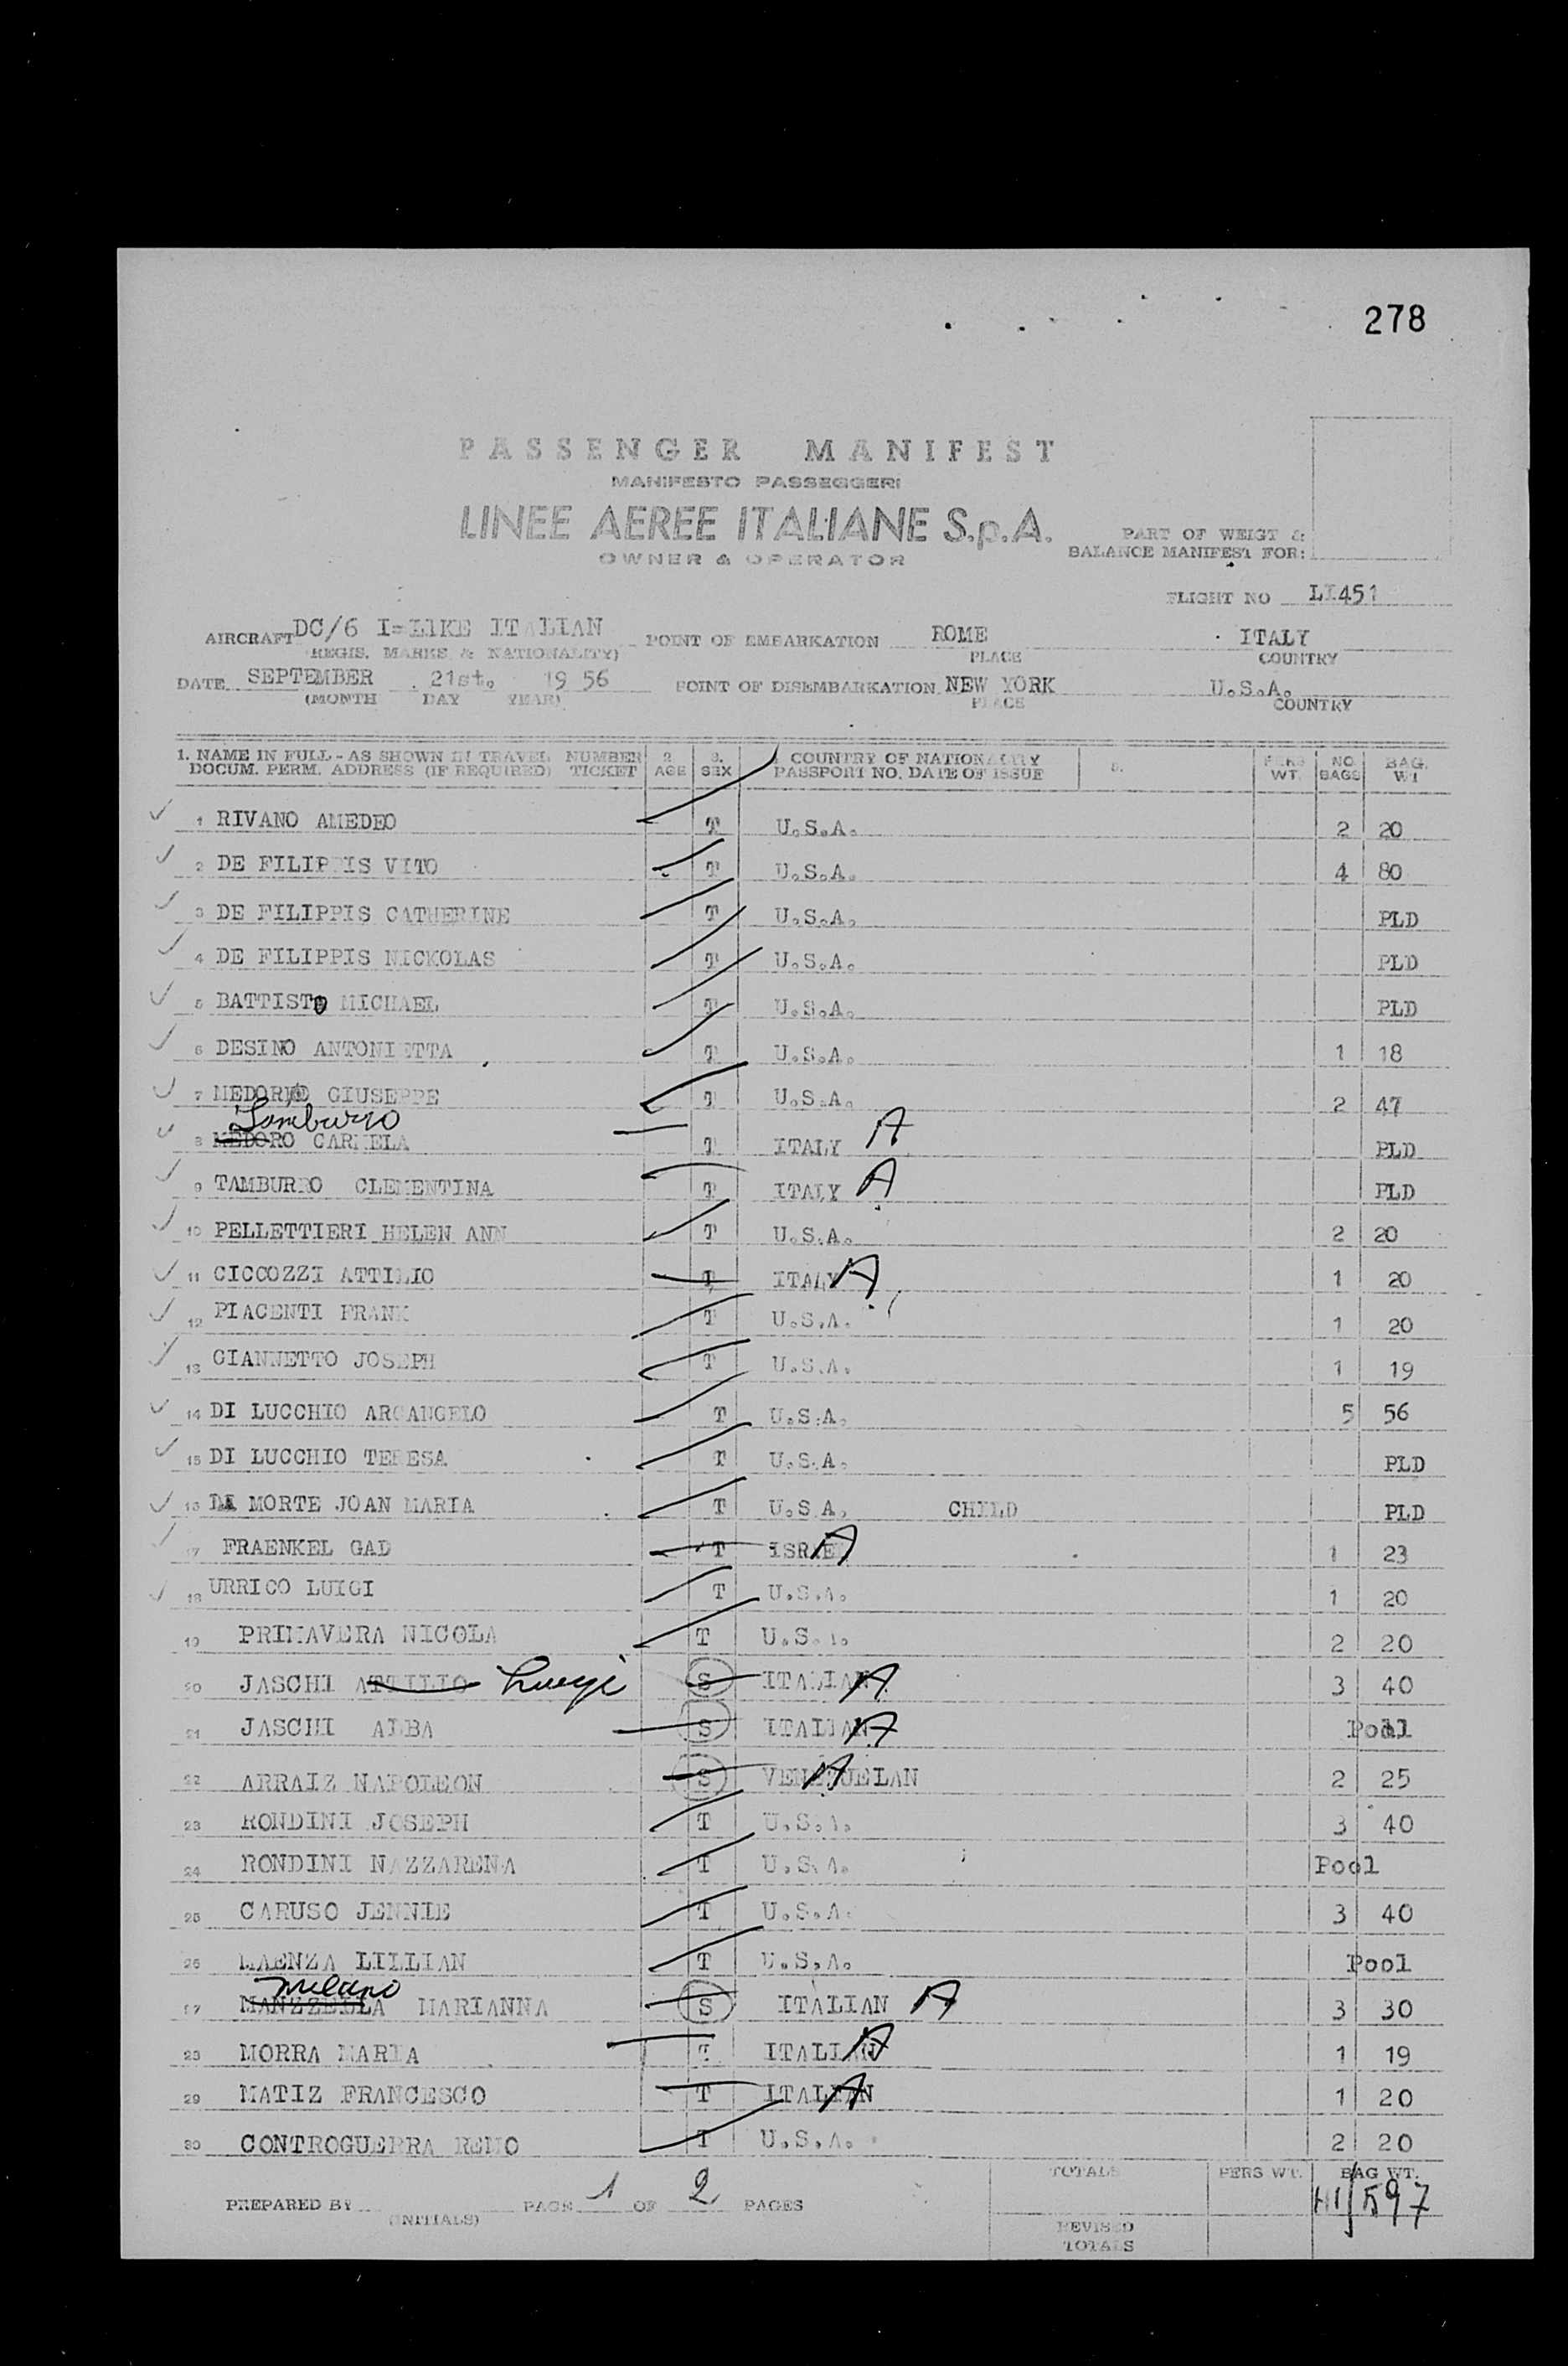 278
PASSENGER MANIFEST
MANIFESTO PASSEGGERI
LINEE AEREE ITALIANE S.p.A.
OWNER & OPERATOR
PART OF WEIGT &
BALANCE MANIFEST FOR:
FLIGHT NO LI451
AIRCRAFT DC/6 I=LIKE ITALIAN POINT OF EMBARKATION ROME ITALY
(REGIS. MARKS & NATIONALITY) PLACE COUNTRY
DATE SEPTEMBER 21st. 19 56 POINT OF DISEMBARKATION NEW YORK U.S.A.
(MONTH DAY YEAR) PLACE COUNTRY
1. NAME IN FULL - AS SHOWN IN TRAVEL NUMBER 2 3. COUNTRY OF NATIONALITY 5. PERS NO BAG.
DOCUM. PERM. ADDRESS (IF REQUIRED) TICKET AGE SEX PASSPORT NO. DATE OF ISSUE WT. BAGS WT
1 RIVANO AMEDEO T U.S.A. 2 20
2 DE FILIPPIS VITO T U.S.A. 4 80
3 DE FILIPPIS CATHERINE T U.S.A. PLD
4 DE FILIPPIS NICKOLAS T U.S.A. PLD
5 BATTISTO MICHAEL T U.S.A. PLD
6 DESINO ANTONIETTA T U.S.A. 1 18
7 MEDORO GIUSEPPE T U.S.A. 2 47
Tamburro
8 MEDORO CARMELA T ITALY A PLD
9 TAMBURRO CLEMENTINA T ITALY A PLD
10 PELLETTIERI HELEN ANN T U.S.A. 2 20
11 CICCOZZI ATTILIO T ITALY A 1 20
12 PIACENTI FRANK T U.S.A. 1 20
13 GIANNETTO JOSEPH T U.S.A. 1 19
14 DI LUCCHIO ARCANGELO T U.S.A. 5 56
15 DI LUCCHIO TERESA T U.S.A. PLD
16 LA MORTE JOAN MARIA T U.S.A. CHILD PLD
17 FRAENKEL GAD T ISRAEL A 1 23
18 URRICO LUIGI T U.S.A. 1 20
19 PRIMAVERA NICOLA T U.S.A. 2 20
20 JASCHI ATTILIO Luigi S ITALIAN A 3 40
21 JASCHI ALBA S ITALIAN A Pool
22 ARRAIZ NAPOLEON S VENEZUELAN A 2 25
23 RONDINI JOSEPH T U.S.A. 3 40
24 RONDINI NAZZARENA T U.S.A. Pool
25 CARUSO JENNIE T U.S.A. 3 40
26 MAENZA LILLIAN T U.S.A. Pool
Milano
27 MANZZELLA MARIANNA S ITALIAN A 3 30
28 MORRA MARIA T ITALIAN A 1 19
29 MATIZ FRANCESCO T ITALIAN A 1 20
30 CONTROGUERRA REMO T U.S.A. 2 20
TOTALS PERS WT. BAG WT.
PREPARED BY PAGE 1 OF 2 PAGES 597
(INITIALS)
REVISED
TOTALS